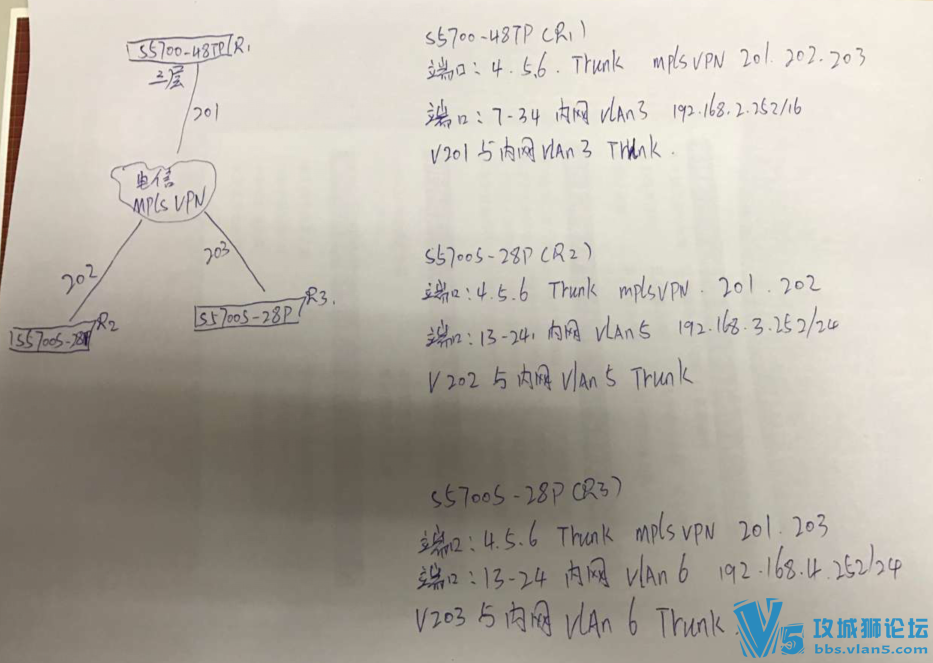 S5700-48TP R1
三层
201
电信
mpls VPN
202
203
S5700S-28P R2
S5700S-28P R3.
S5700-48TP (R1)
端口: 4.5.6. Trunk mplsVPN 201.202.203
端口: 7-34 内网 vlan3 192.168.2.252/16
V201 与内网 vlan 3 Trunk.
S5700S-28P (R2)
端口: 4.5.6 Trunk mplsVPN. 201.202
端口: 13-24, 内网 vlan5 192.168.3.252/24
V202 与内网 vlan 5 Trunk
S5700S-28P (R3)
端口: 4.5.6 Trunk mplsVPN 201.203
端口: 13-24 内网 vlan 6 192.168.4.252/24
V203 与内网 vlan 6 Trunk.
V5 攻城狮论坛
bbs.vlan5.com